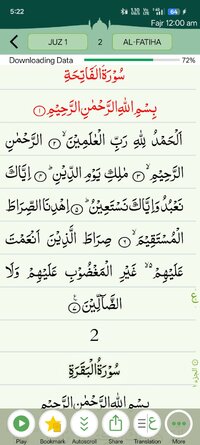 5:22
64
Fajr 12:00 am
JUZ 1 2 AL-FATIHA
Downloading Data 72%
سُوْرَةُ الْفَاتِحَةِ
بِسْمِ اللهِ الرَّحْمٰنِ الرَّحِيْمِ ۝١
اَلْحَمْدُ لِلّٰهِ رَبِّ الْعٰلَمِيْنَ ۙ۝٢ الرَّحْمٰنِ
الرَّحِيْمِ ۙ۝٣ مٰلِكِ يَوْمِ الدِّيْنِ ؕ۝٤ اِيَّاكَ
نَعْبُدُ وَاِيَّاكَ نَسْتَعِيْنُ ؕ۝٥ اِهْدِنَا الصِّرَاطَ
الْمُسْتَقِيْمَ ۙ۝٦ صِرَاطَ الَّذِيْنَ اَنْعَمْتَ
عَلَيْهِمْ ۙ۬ غَيْرِ الْمَغْضُوْبِ عَلَيْهِمْ وَلَا
الضَّآلِّيْنَ ۝٧
ع
2
سُوْرَةُ الْبَقَرَةِ
بِسْمِ اللهِ الرَّحْمٰنِ الرَّحِيْمِ
Play Bookmark Autoscroll Share Translation More